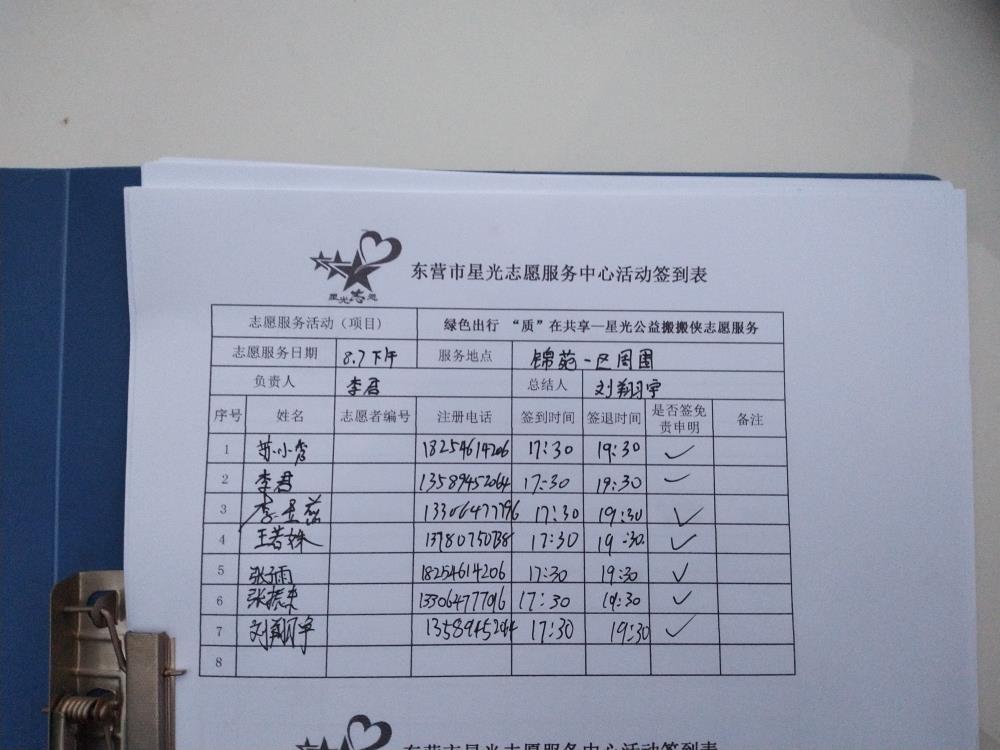 星光志愿
东营市星光志愿服务中心活动签到表
志愿服务活动（项目） 绿色出行 “质”在共享—星光公益搬搬侠志愿服务
志愿服务日期 8.7下午 服务地点 锦苑一区周围
负责人 李君 总结人 刘翔宇
序号 姓名 志愿者编号 注册电话 签到时间 签退时间 是否签免责申明 备注
1 苏小秀 18254614206 17:30 19:30 ✓
2 李君 13589452064 17:30 19:30 ✓
3 李昱蕊 13306477796 17:30 19:30 ✓
4 王若姝 13780750738 17:30 19:30 ✓
5 张子雨 18254614206 17:30 19:30 ✓
6 张振来 13306477796 17:30 19:30 ✓
7 刘翔宇 1358945264 17:30 19:30 ✓
8
东营市星光志愿服务中心活动签到表